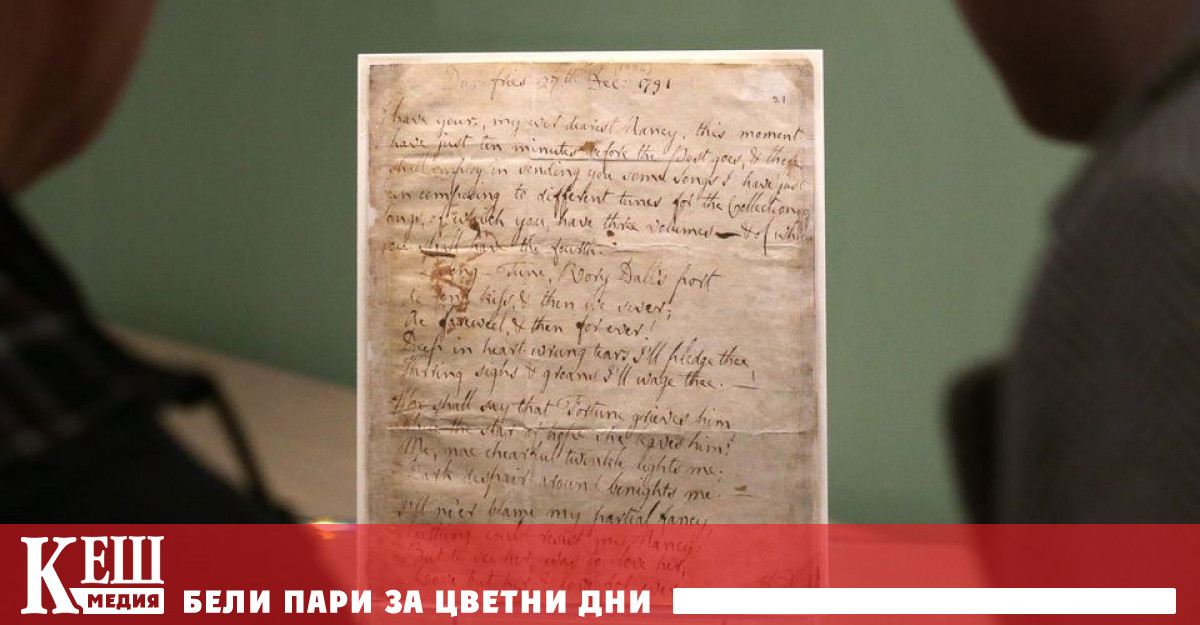 Dumfries 27th Dec: 1791
21
I have yours, my ever dearest Nancy, this moment
have just ten minutes before the Post goes, & these
shall employ in sending you some songs I have just
been composing to different tunes for the Collection of
songs, of which you have three volumes — & of which
you shall have the fourth. —
Song — Tune, Rory Dall's port
Ae fond kiss, & then we sever;
Ae fareweel, & then for ever!
Deep in heart-wrung tears I'll pledge thee,
Warring sighs & groans I'll wage thee. —
Who shall say that Fortune grieves him
While the star of hope she leaves him:
Me, nae chearful twinkle lights me:
Dark despair around benights me! —
I'll ne'er blame my partial fancy,
Naething could resist my Nancy:
But to see her, was to love her,
Love but her, & love for ever.
КЕШ
МЕДИЯ
БЕЛИ ПАРИ ЗА ЦВЕТНИ ДНИ